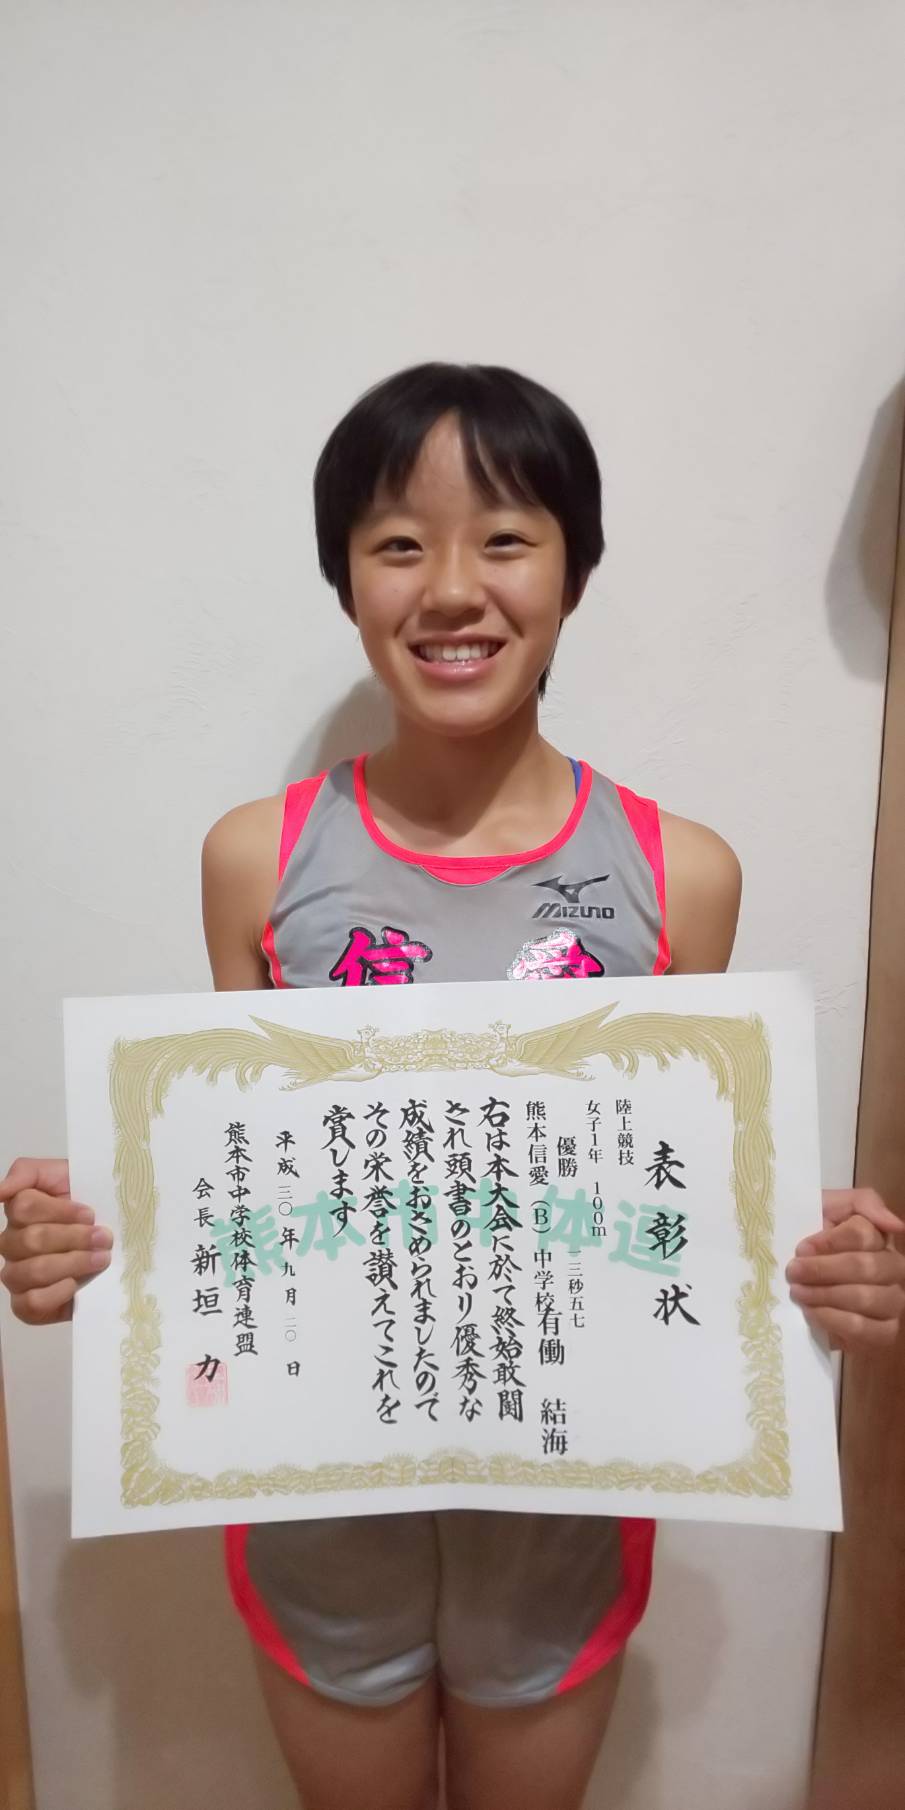 MIZUNO
信愛
表彰状
陸上競技
女子1年 100m
優勝 一三秒五七
熊本信愛(B)中学校有働 結海
右は本大会に於て終始敢闘
され頭書のとおり優秀な
成績をおさめられましたので
その栄誉を讃えてこれを
賞します
平成三〇年九月二〇日
熊本市中学校体育連盟
会長 新垣 力
熊本市中体連